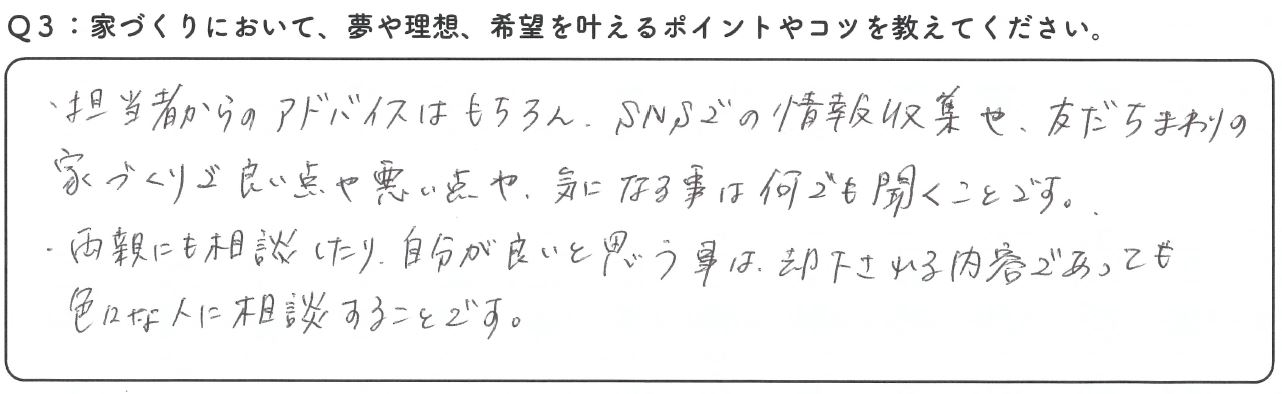 Q3：家づくりにおいて、夢や理想、希望を叶えるポイントやコツを教えてください。
・担当者からのアドバイスはもちろん、SNSでの情報収集や、友だちまわりの
家づくりで良い点や悪い点や、気になる事は何でも聞くことです。
・両親にも相談したり、自分が良いと思う事は、却下される内容であっても
色々な人に相談することです。